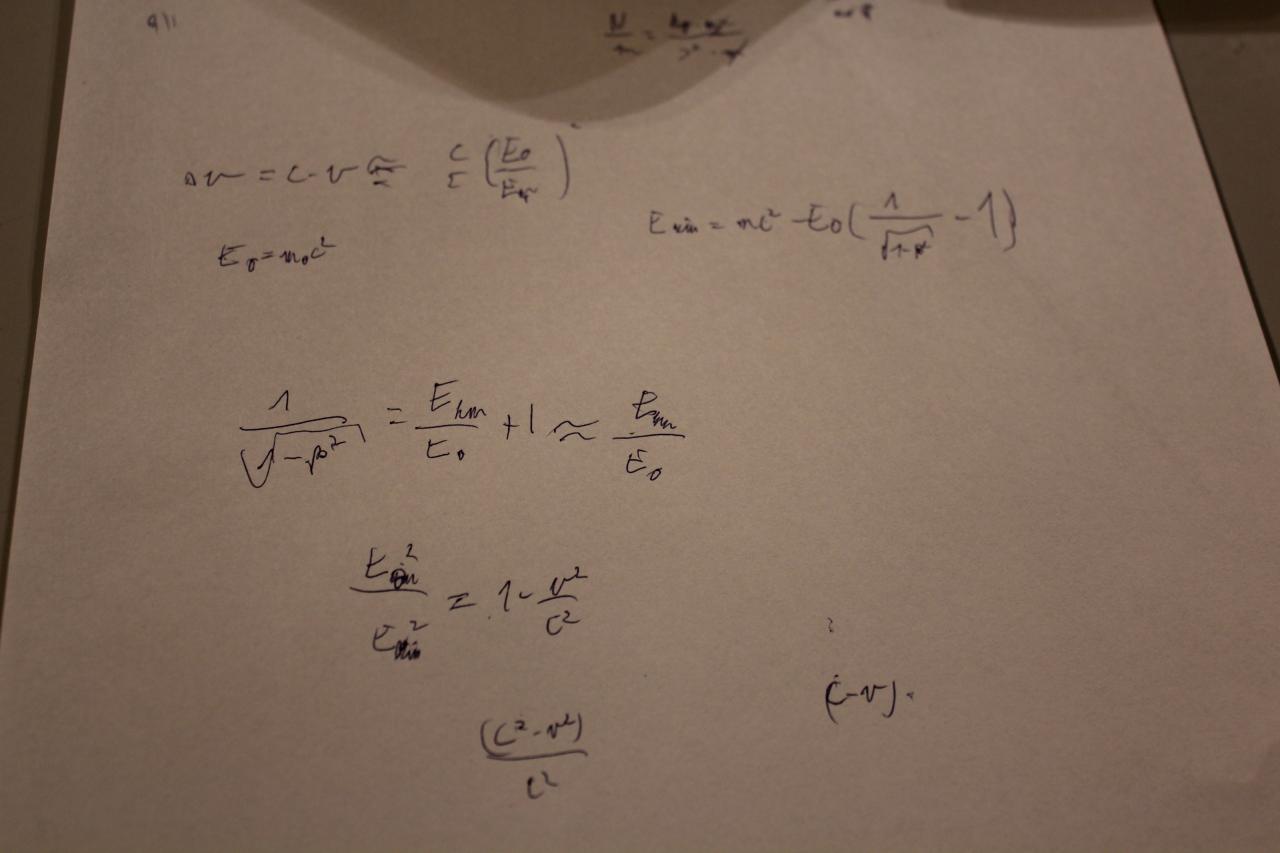 Δv = c - v ≈ c/2 (E₀/E_kin)²
E_kin = mc² - E₀(1/√(1-β²) - 1)
E₀ = m₀c²
1/√(1-β²) = E_kin/E₀ + 1 ≈ E_kin/E₀
E₀²/E_kin² = 1 - v²/c²
(c-v)·
(c²-v²)/c²